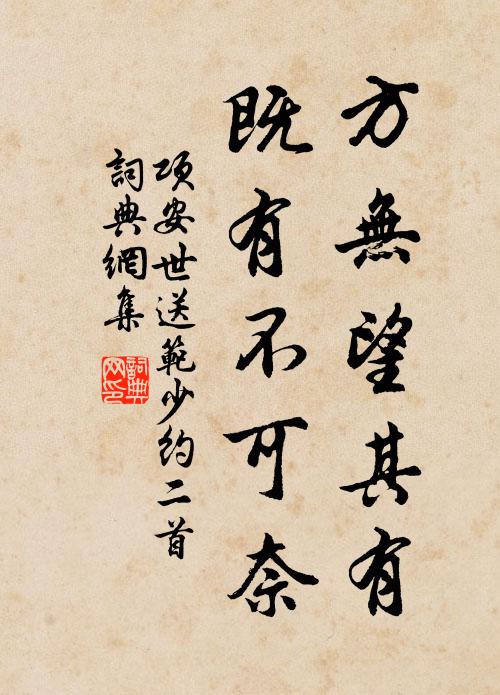 方無望其有
既有不可奈
項安世送範少約二首
詞典網集
詞典網印